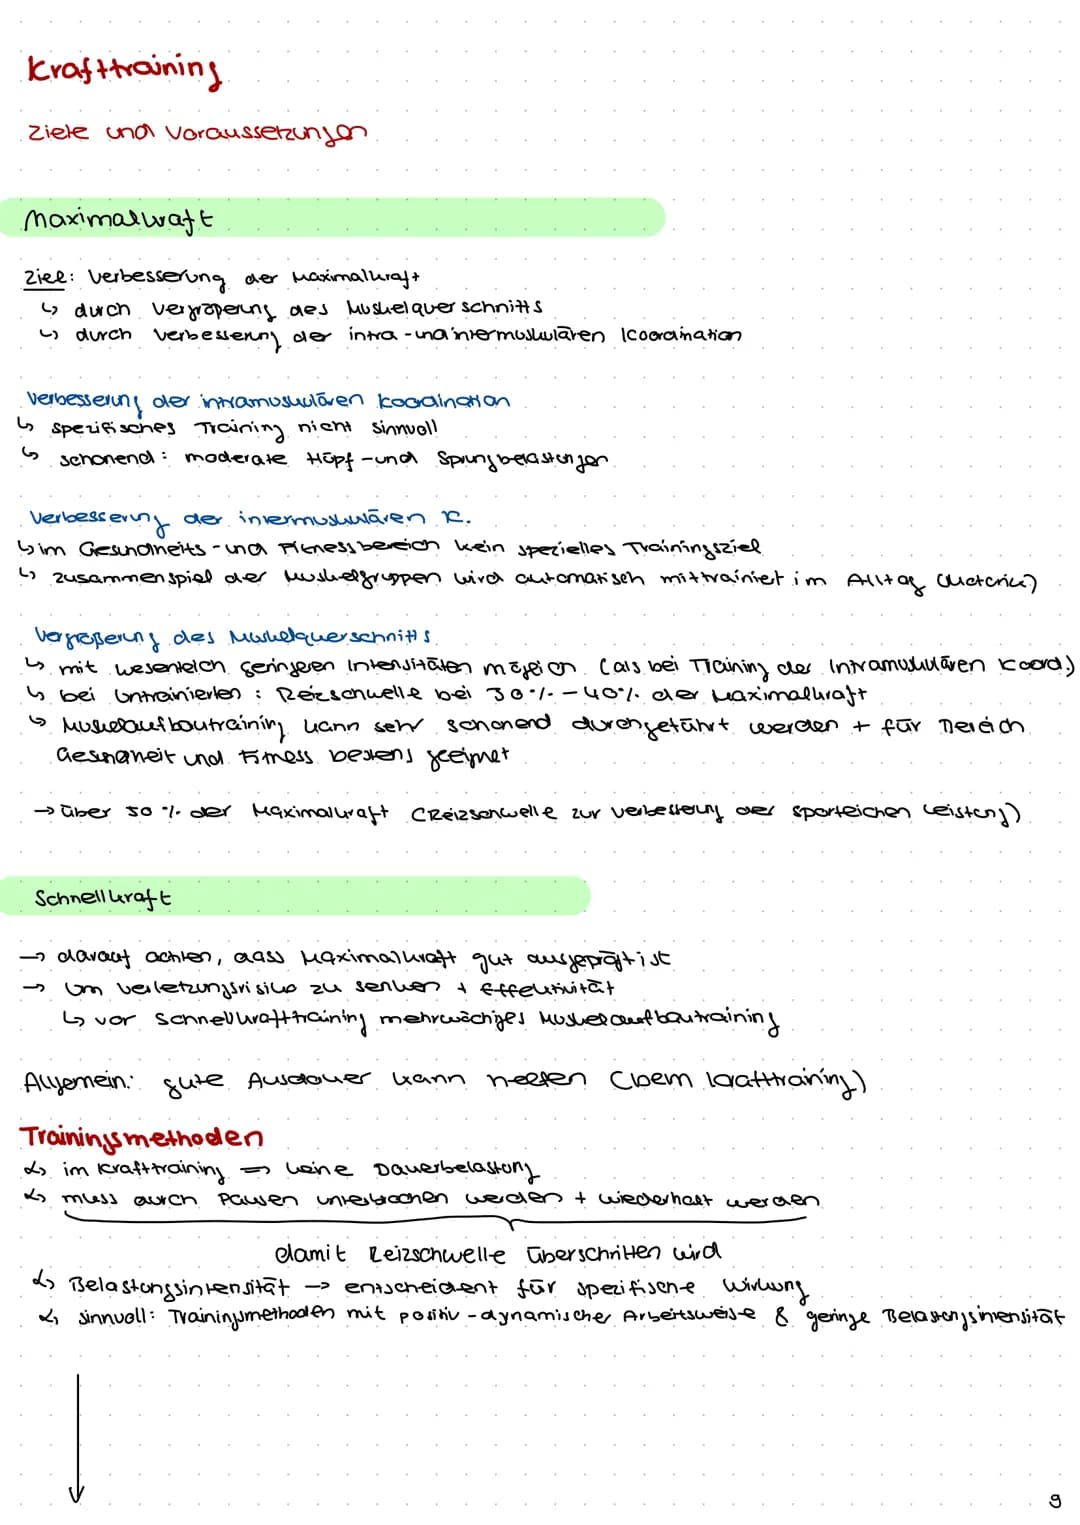 Krafttraining
Ziele und Voraussetzungen
Maximalkraft
Ziel: Verbesserung der Maximalkraft
↳ durch Vergrößerung des Muskelquerschnitts
↳ durch Verbesserung der intra- und intermuskulären Koordination
Verbesserung der intramuskulären Koordination
↳ spezifisches Training nicht sinnvoll
↳ schonend: moderate Hüpf- und Sprungbelastungen
Verbesserung der intermuskulären K.
↳ im Gesundheits- und Fitnessbereich kein spezielles Trainingsziel
↳ Zusammenspiel der Muskelgruppen wird automatisch mittrainiert im Alltag
Vergrößerung des Muskelquerschnitts
↳ mit wesentlich geringeren Intensitäten möglich (als bei Training der Intramuskulären Koord.)
↳ bei Untrainierten: Reizschwelle bei 30% - 40% der Maximalkraft
↳ Muskelaufbautraining kann sehr schonend durchgeführt werden + für Bereich
Gesundheit und Fitness bestens geeignet
→ über 50 % der Maximalkraft (Reizschwelle zur Verbesserung der sportlichen Leistung)
Schnellkraft
→ darauf achten, dass Maximalkraft gut ausgeprägt ist
→ um Verletzungsrisiko zu senken + Effektivität
↳ vor Schnellkrafttraining mehrwöchiges Muskelaufbautraining
Allgemein: gute Ausdauer kann helfen (beim Krafttraining)
Trainingsmethoden
↳ im Krafttraining => keine Dauerbelastung
↳ muss durch Pausen unterbrochen werden + wiederholt werden
damit Reizschwelle überschritten wird
↳ Belastungsintensität → entscheident für spezifische Wirkung
↳ sinnvoll: Trainingsmethoden mit positiv-dynamischer Arbeitsweise & geringe Belastungsintensität
9